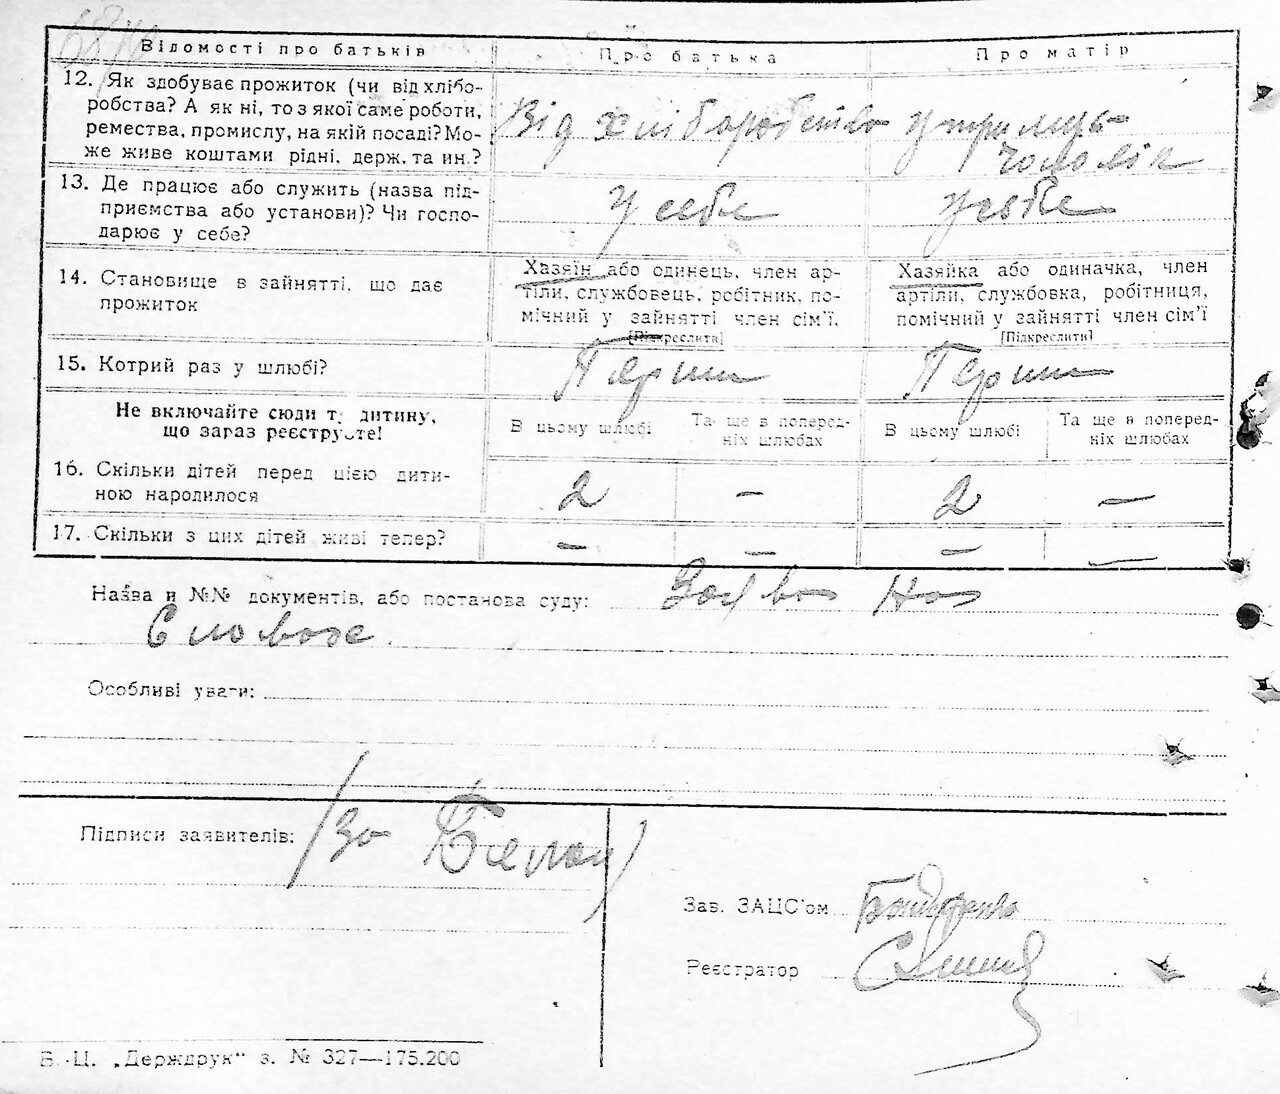 Відомості про батьків
Про батька
Про матір
12. Як здобуває прожиток (чи від хлібо-
робства? А як ні, то з якої саме роботи,
ремества, промислу, на якій посаді? Мо-
же живе коштами рідні, держ. та ин.?
Від хліборобство
утримує
чоловік
13. Де працює або служить (назва під-
приємства або установи)? Чи госпо-
дарює у себе?
У себе
У себе
14. Становище в зайнятті, що дає
прожиток
Хазяїн або одинець, член ар-
тілі, службовець, робітник, по-
мічний у зайнятті член сім'ї.
[Підкреслити]
Хазяйка або одиначка, член
артілі, службовка, робітниця,
помічний у зайнятті член сім'ї
[Підкреслити]
15. Котрий раз у шлюбі?
Перши
Перши
Не включайте сюди ту дитину,
що зараз реєструєте!
В цьому шлюбі
Та ще в поперед-
ніх шлюбах
В цьому шлюбі
Та ще в поперед-
ніх шлюбах
16. Скільки дітей перед цією дити-
ною народилося
2
–
2
–
17. Скільки з цих дітей живі тепер?
–
–
–
–
Назва и №№ документів, або постанова суду: Заява на
Словах
Особливі уваги:
Підписи заявителів: /за
Зав. ЗАЦС'ом
Реєстратор
Б. Ц. „Держдрук" з. № 327—175.200